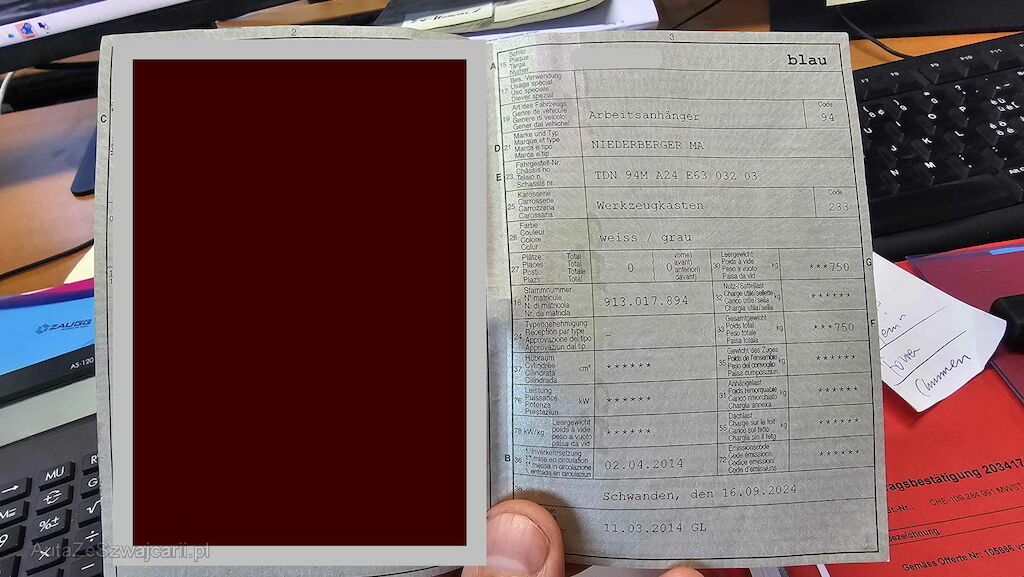 2
3
C
A 15 Schild
Plaque
Targa
Numer
blau
17 Bes. Verwendung
Usage spécial
Uso speciale
Diever spezial
19 Art des Fahrzeugs
Genre de véhicule
Genere di veicolo
Gener dal vehichel
Arbeitsanhänger
Code
94
D 21 Marke und Typ
Marque et type
Marca e tipo
Marca e tip
NIEDERBERGER MA
E 23 Fahrgestell-Nr.
Châssis no
Telaio n.
Schassis nr.
TDN 94M A24 E63 032 03
25 Karosserie
Carrosserie
Carrozzeria
Carossaria
Werkzeugkasten
Code
233
26 Farbe
Couleur
Colore
Colur
weiss / grau
27 Plätze: Total
Places: Total
Posti: Totale
Plazs: Total
0
( vorne)
( avant)
( 0 anteriori)
( davant)
30 Leergewicht
Poids à vide
Peso a vuoto
Paisa da vid
kg
***750
G
18 Stammnummer
N° matricule
N. di matricola
Nr. da matricla
913.017.894
32 Nutz-/Sattellast
Charge utile/sellette
Carico utile/sella
Chargia utila/sella
kg
******
24 Typengenehmigung
Réception par type
Approvazione del tipo
Approvaziun dal tip
-
33 Gesamtgewicht
Poids total
Peso totale
Paisa totala
kg
***750
F
37 Hubraum
Cylindrée
Cilindrata
Cilindrada
cm³
******
35 Gewicht des Zuges
Poids de l'ensemble
Peso del convoglio
Paisa cumposiziun
kg
******
76 Leistung
Puissance
Potenza
Prestaziun
kW
******
31 Anhängelast
Poids remorquable
Carico rimorchiato
Chargia annexa
kg
******
78 kW/kg Leergewicht
poids à vide
peso a vuoto
paisa da vid
******
55 Dachlast
Charge sur le toit
Carico sul tetto
Chargia sin il tetg
kg
******
B 36 1. Inverkehrsetzung
1re mise en circulation
1a messa in circolazione
1. entrada en circulaziun
02.04.2014
72 Emissionscode
Code émissions
Codice emissioni
Code d'emissiuns
******
38
Schwanden, den 16.09.2024
11.03.2014 GL
ZAUGG
AS-120
MU
M=
%±
√
9
AutaZeSzwajcarii.pl
F7
F9
F10
F11
F12
N
M
Alt G
agsbestätigung 203417
GL-Nr.: CHE-109.284.991 MWST
ezeichnung
Gemäss Offerte Nr. 105866 v